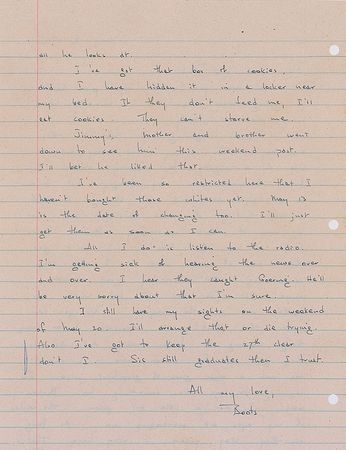 all he looks at.
I've got that box of cookies,
and I have hidden it in a locker near
my bed. If they don't feed me, I'll
eat cookies. They can't starve me.
Jimmy's mother and brother went
down to see him this weekend past.
I'll bet he liked that.
I've been so restricted here that I
haven't bought those whites yet. May 13
is the date of changing too. I'll just
get them as soon as I can.
All I do is listen to the radio.
I'm getting sick of hearing the news over
and over. I hear they caught Goering. He'll
be very sorry about that I'm sure.
I still have my sights on the weekend
of May 20. I'll arrange that or die trying.
Also I've got to keep the 27th clear
don't I. Sis still graduates then I trust.
All my love,
Boots